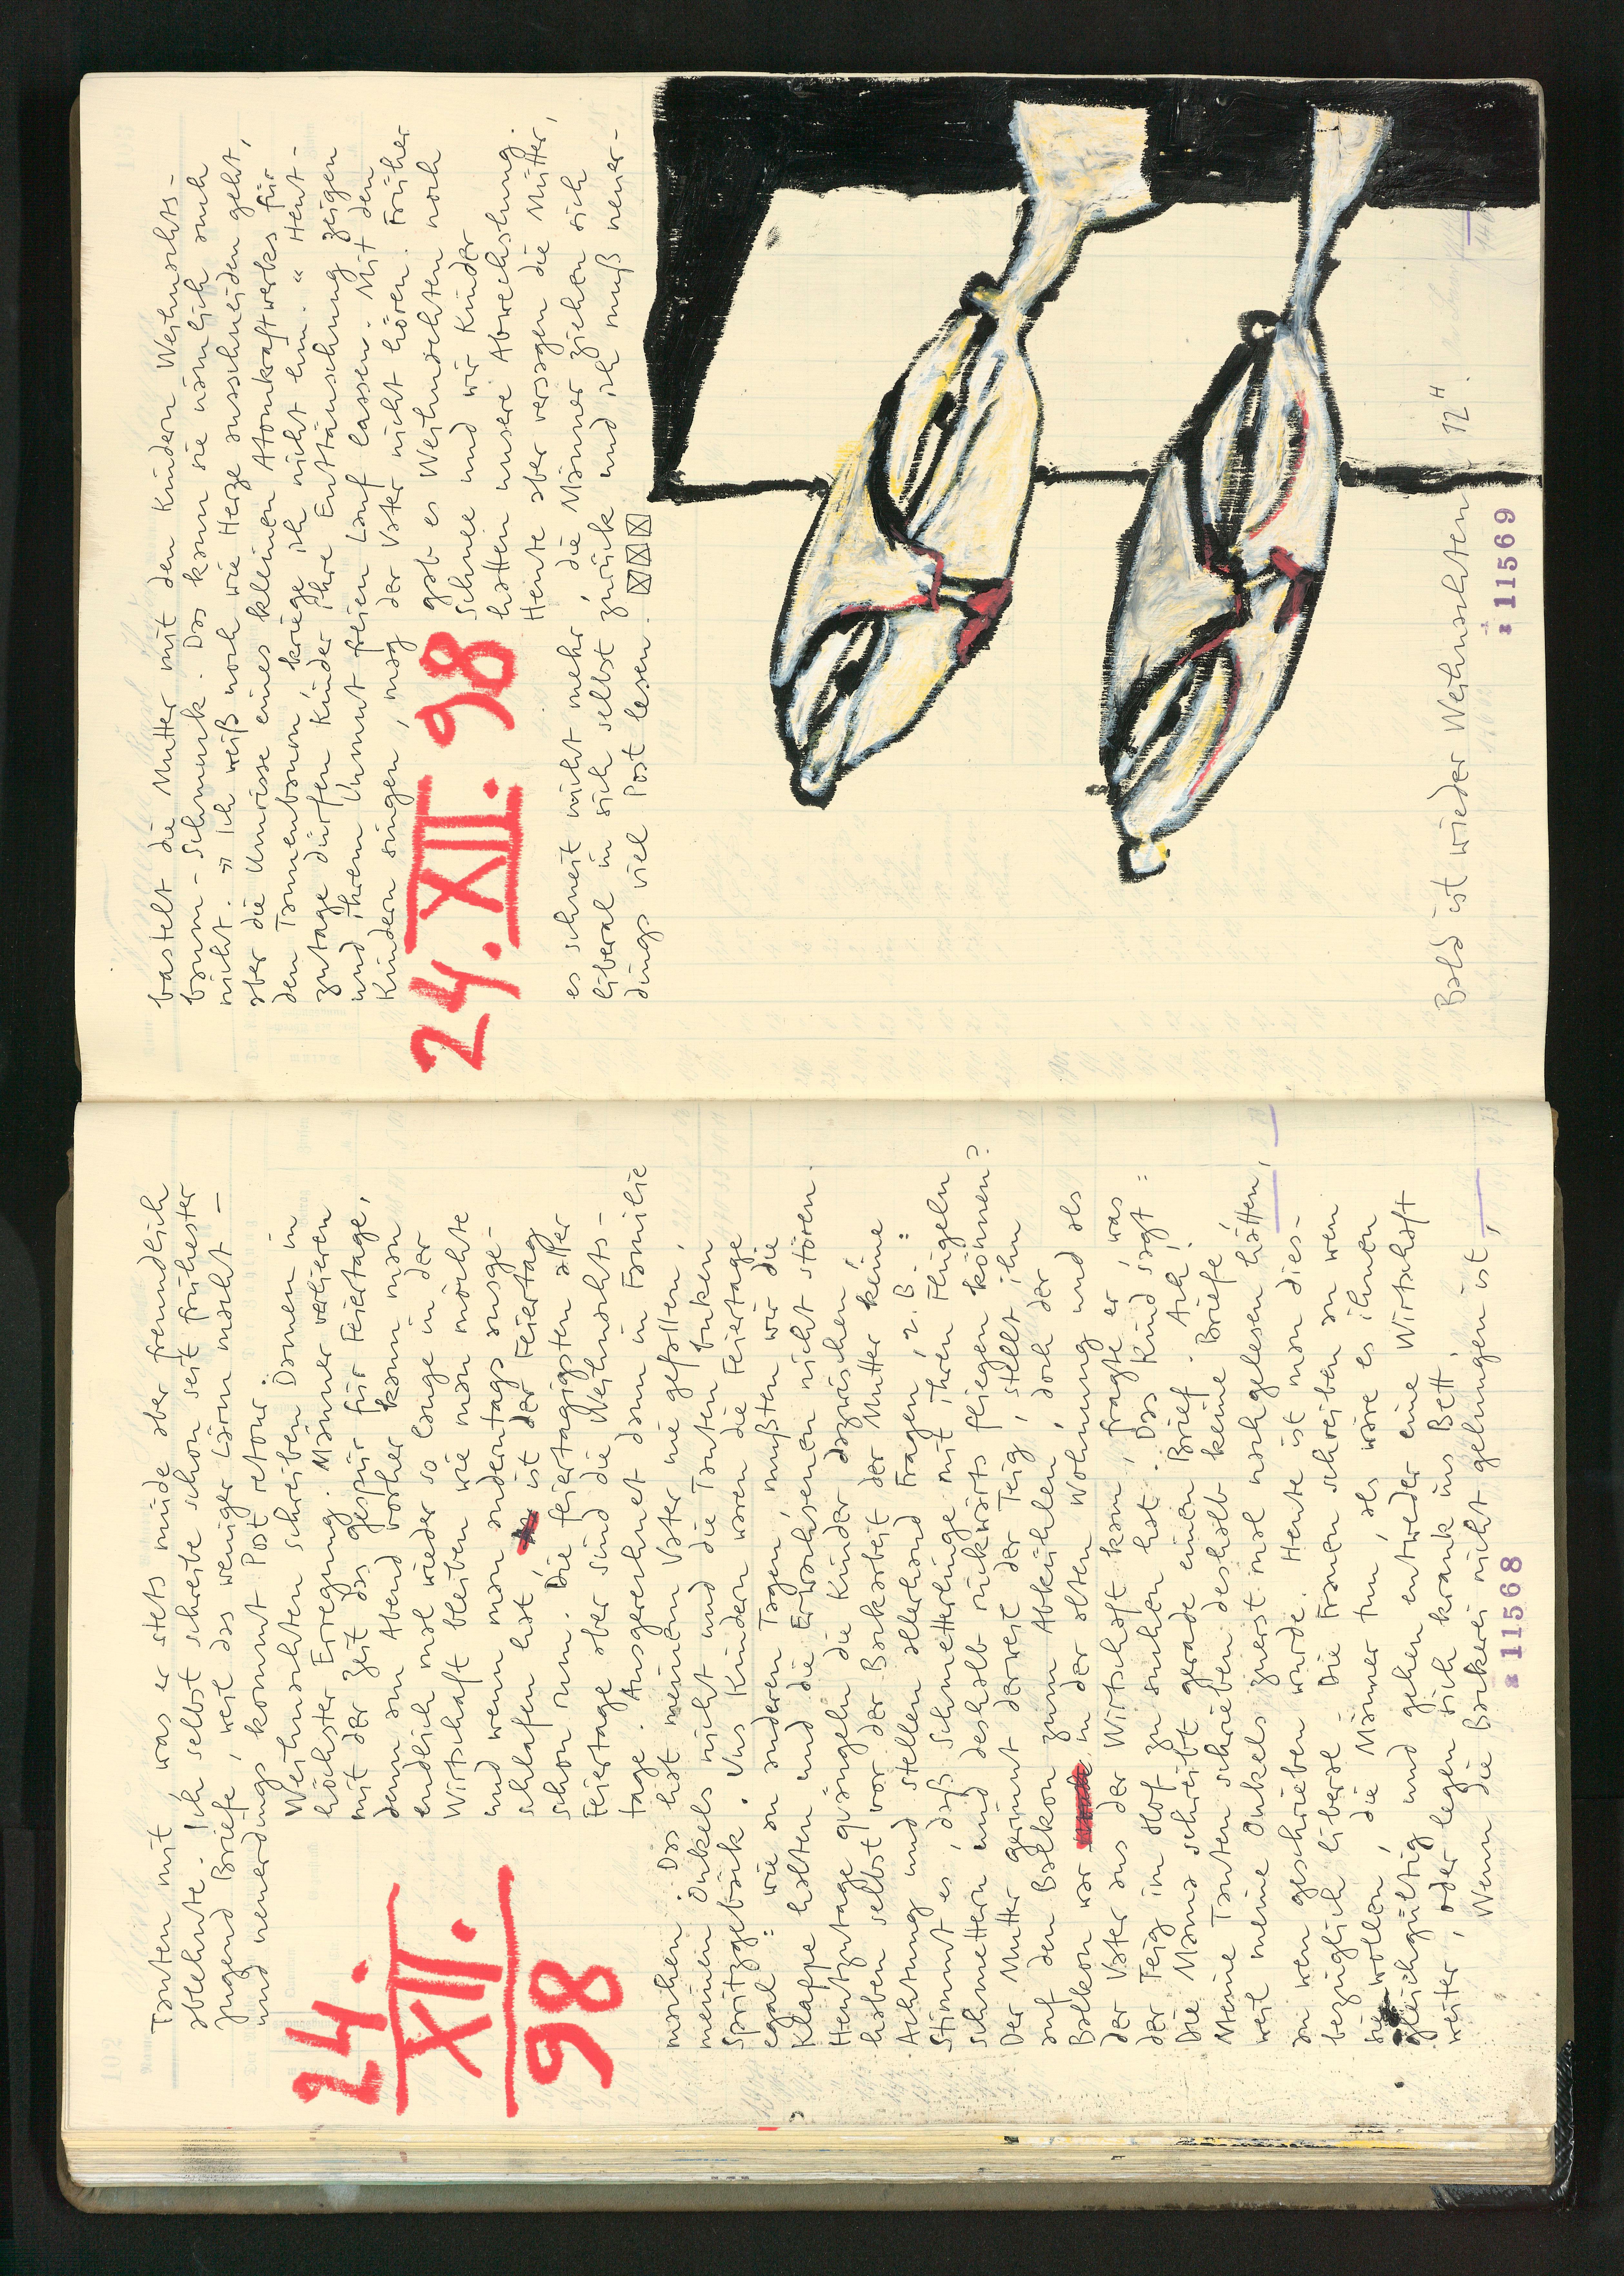 Tanten mit was er stets müde aber freundlich
ablehnte. Ich selbst schreibe schon seit frühester
Jugend Briefe, weil das weniger Lärm macht –
und neuerdings kommt Post retour.
24.
XII.
98
Weihnachten schreiben Damen in
höchster Erregung. Männer verlieren
mit der Zeit das gespür für Feiertage,
denn am Abend vorher kann man
endlich mal wieder so lange in der
Wirtschaft bleiben wie man möchte
und wenn man anderntags ausge-
schlafen hat, ist der Feiertag
schon rum. Die feiertagigsten aller
Feiertage aber sind die Weihnachts-
tage. Ausgerechnet dann in Familie
machen. Das hat meinem Vater nie gefallen,
meinen Onkels nicht und die Tanten buken
Spritzgebäck. Uns Kindern waren die Feiertage
egal: wie an anderen Tagen, mußten wir die
Klappe halten und die Erwachsenen nicht stören.
Heutzutage quängeln die Kinder dazwischen,
haben selbst vor der Backarbeit der Mutter keine
Achtung und stellen allerhand Fragen, z.B.:
Stimmt es, daß Schmetterlinge mit ihren Flügeln
schmettern und deshalb rückwärts fliegen können?
Der Mutter gerinnt derweil der Teig, stellt ihn
auf den Balkon zum Abkühlen, doch der
Balkon war in der alten Wohnung und als
der Vater aus der Wirtschaft kam, fragte er, was
der Teig im Hof zu suchen hat. Das Kind sagt:
Die Mama schreibt gerade einen Brief. Ach!
Meine Tanten schrieben deshalb keine Briefe,
weil meine Onkels zuerst mal nachgelesen hätten,
an wen geschrieben wurde. Heute ist man dies-
bezüglich liberal. Die Frauen schreiben an wen
sie wollen, die Männer tun, als wäre es ihnen
gleichgültig und gehen entweder eine Wirtschaft
weiter, oder legen sich krank ins Bett.
Wenn die Backerei nicht gelungen ist,
11568
bastelt die Mutter mit den Kindern Weihnachts-
baum-Schmuck. Das kann sie nämlich auch
nicht. „Ich weiß noch wie Herze ausschneiden geht,
aber die Umrisse eines kleinen Atomkraftwerks für
den Tannenbaum, kriege ich nicht hin." Heut-
zutage dürfen Kinder ihre Enttäuschung zeigen
und ihrem Unmut freien Lauf lassen. Mit den
Kindern singen, mag der Vater nicht hören. Früher
24.XII.98
gab es Weihnachten noch
Schnee und wir Kinder
hatten unsere Abwechslung.
Heute aber versagen die Mütter,
es schneit nicht mehr, die Männer ziehen sich
liberal in sich selbst zurück und ich muß neuer-
dings viel Post lesen.
Bald ist wieder Weihnachten 12H.
11569